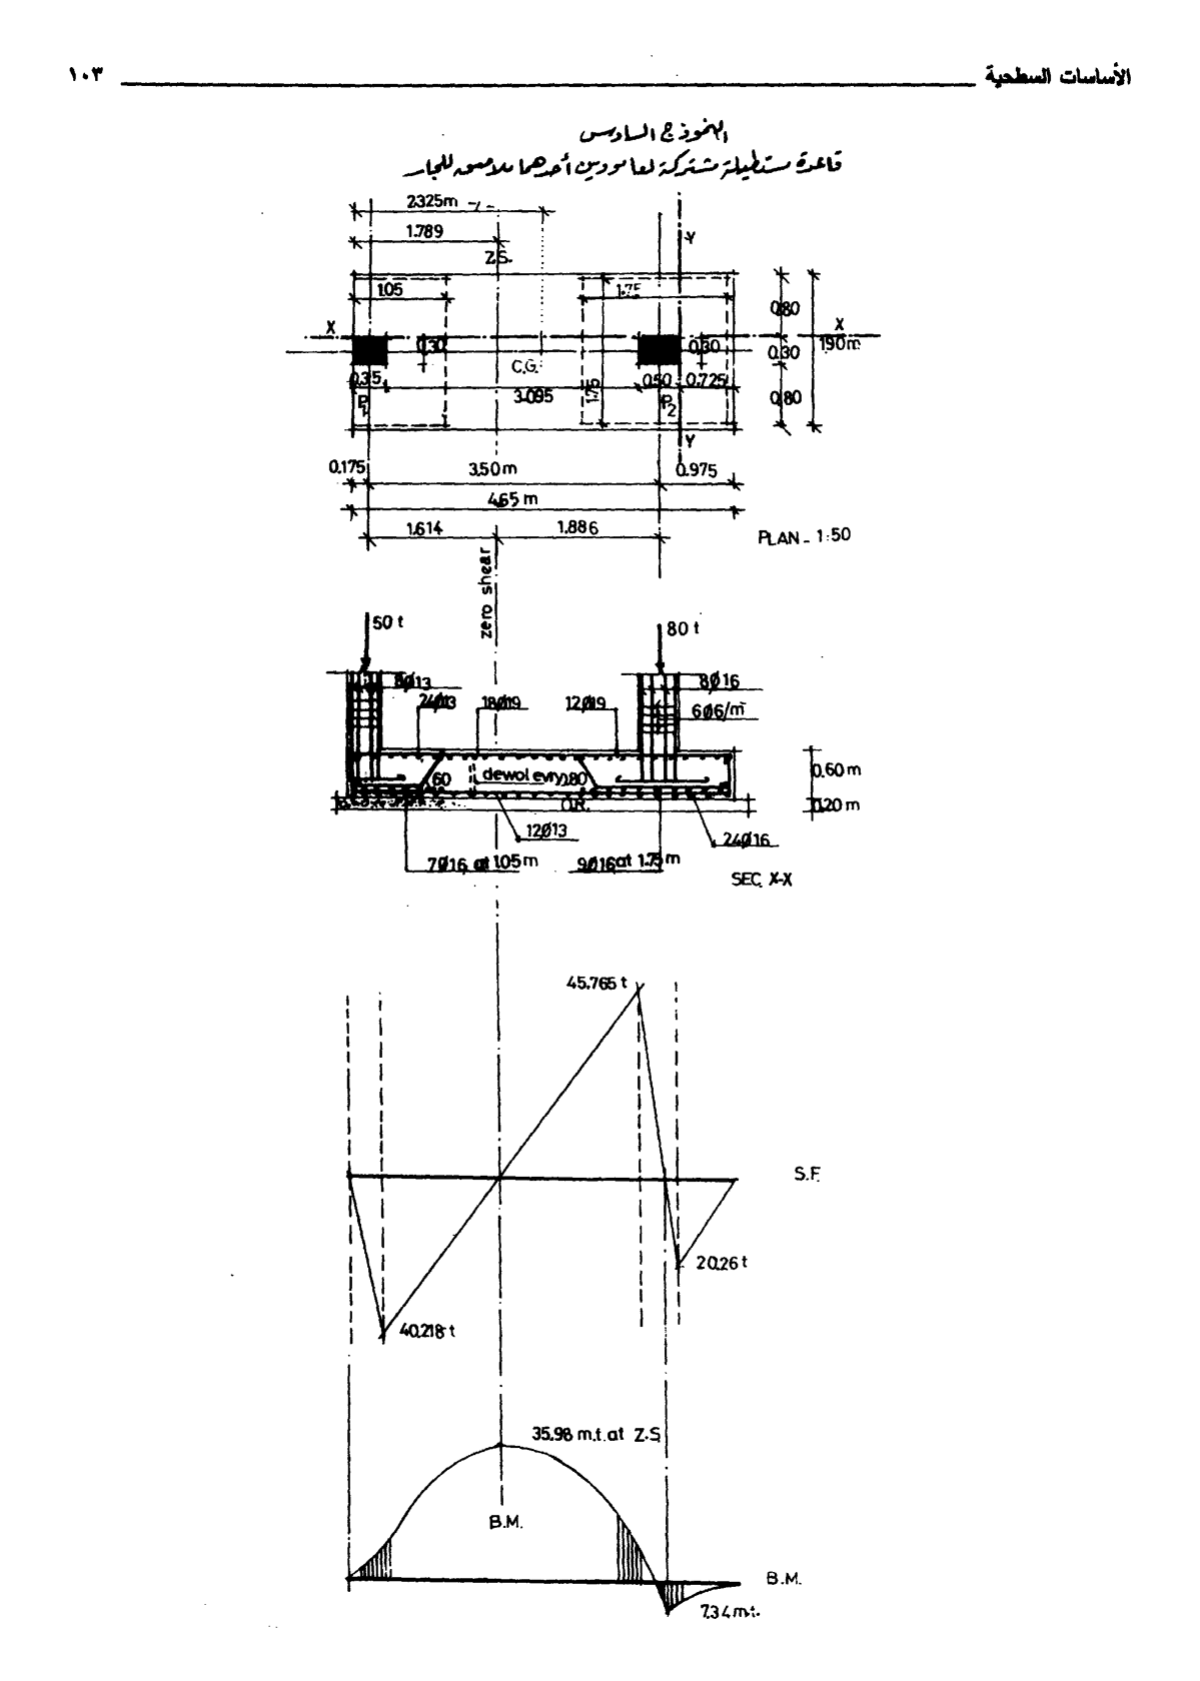 الأساسات السطحية ١٠٣
النموذج السادس
قاعدة مستطيلة مشتركة لعامودين أحدهما ملاصق للجار
2325m
1.789
Y
Z.S.
1.05
1.75
0.80
X
X
0.30
0.30
0.30
1.90m
C.G.
0.35
3.095
1.75
0.50
0.725
0.80
P1
P2
Y
0.175
3.50m
0.975
4.65 m
1.614
1.886
PLAN - 1:50
zero shear
50 t
80 t
8Ø13
8Ø16
24Ø13
18Ø19
12Ø19
6Ø6/m
60
dewol evry 80
0.60 m
0.20 m
12Ø13
24Ø16
7Ø16 at 1.05 m
9Ø16 at 1.75 m
SEC. X-X
45.765 t
S.F.
20.26 t
40.218 t
35.98 m.t. at Z.S
B.M.
B.M.
7.34 m.t.